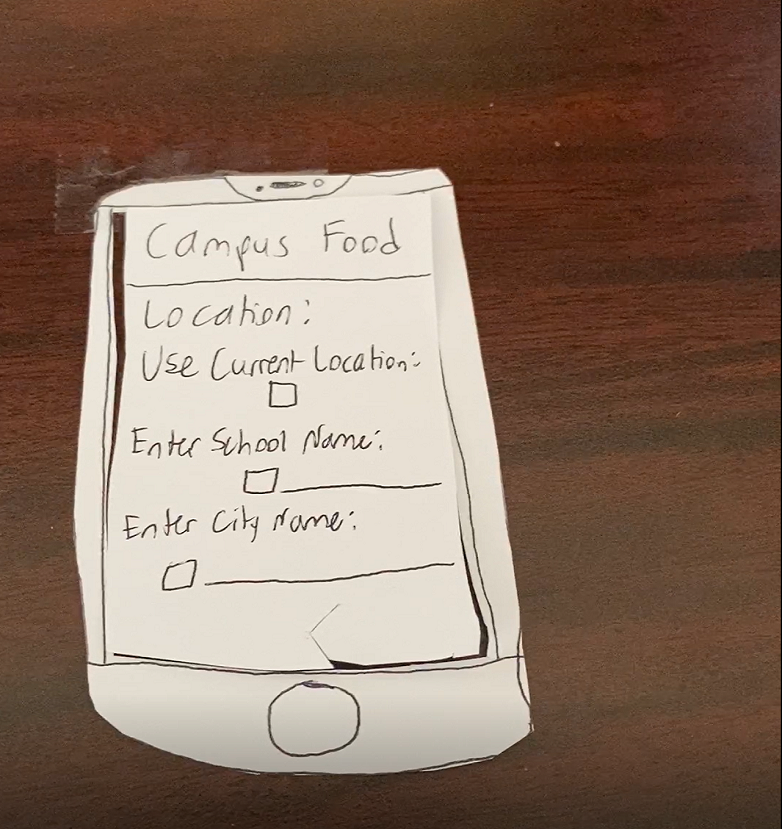 Campus Food
Location:
Use Current Location:
Enter School Name:
Enter City Name: